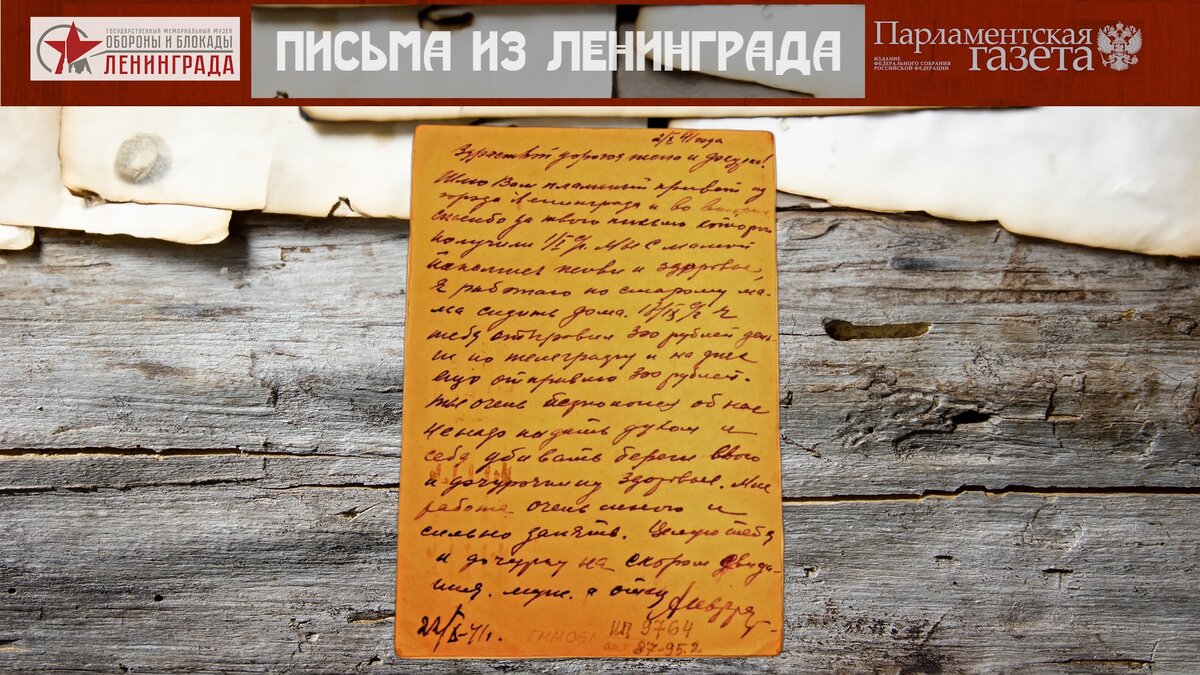 ГОСУДАРСТВЕННЫЙ МЕМОРИАЛЬНЫЙ МУЗЕЙ
ОБОРОНЫ И БЛОКАДЫ
ЛЕНИНГРАДА
ПИСЬМА ИЗ ЛЕНИНГРАДА
Парламентская
газета
ИЗДАНИЕ
ФЕДЕРАЛЬНОГО СОБРАНИЯ
РОССИЙСКОЙ ФЕДЕРАЦИИ
2/X 41 года
Здраствуй дорогая жена и
Шлю Вам пламенный привет из
города Ленинграда и во
спасибо за твого письмо которое
получили 1/X с/г. Мы с мамой
живи и здоровье,
Я работаю по старому ма-
ма сидить дома. 18/IX с/г я
тебе отправил 300 рублей день-
ги по телеграфу и на днях
ещо отправлю 300 рублей.
ты очень безпокоися об нас
Ненадо падать духом и
себя убивать береги ввого
и дочурочкину здоровье. Мне
работа очень много и
сильно занять. Целую тебя
и дочурку на скором свида-
ния. муж. и отец
22/X-41г.
КП 9764
акт 87-95.2